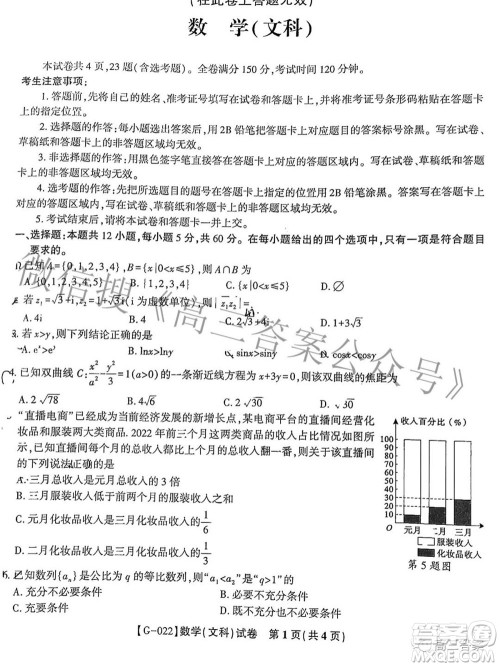 (在此卷上答题无效)
数 学(文科)
本试卷共4页,23题(含选考题)。全卷满分150分,考试时间120分钟。
考生注意事项:
1.答题前,先将自己的姓名、准考证号填写在试卷和答题卡上,并将准考证号条形码粘贴在答题卡上的指定位置。
2.选择题的作答:每小题选出答案后,用2B铅笔把答题卡上对应题目的答案标号涂黑。写在试卷、
草稿纸和答题卡上的非答题区域均无效。
3.非选择题的作答:用黑色签字笔直接答在答题卡上对应的答题区域内。写在试卷、草稿纸和答
题卡上的非答题区域均无效。
4.选考题的作答:先把所选题目的题号在答题卡上指定的位置用2B铅笔涂黑。答案写在答题卡
上对应的答题区域内,写在试卷、草稿纸和答题卡上的非答题区域均无效。
5.考试结束后,请将本试卷和答题卡一并上交。
一、选择题:本题共12小题,每小题5分,共60分。在每小题给出的四个选项中,只有一项是符合题目
要求的。
已知A={0,1,2,3,4},B={x|0<x≤5},则A∩B=
A.{0,1,2,3,4} B.{1,2,3,4} C.{x|0<x≤5} D.∅
若z₁=√3+i,z₂=1+√3i(i为虚数单位),则
A.4i B.4 C.2√3+4i D.1+3√3
3.若x>y,则下列结论正确的是
A.eˣ>eʸ B.lnx>lny C.sinx>siny D.cosx<cosy
4.已知双曲线C:x²/a²-y²/3=1(a>0)的一条渐近线方程为x+3y=0,则该双曲线的焦距为
A.√30 B.4√3 C.8 D.2√30
"直播电商"已经成为当前经济发展的新增长点,某电商平台的直播间经营化
妆品和服装两大类商品。2022年前三个月这两类商品的收入占比情况如图所
示,已知直播间每个月的总收入都比上个月的总收入翻一番,则关于该直播间
的下列说法正确的是
A.三月总收入是元月总收入的3倍
B.三月服装收入低于前两个月的服装收入之和
C.元月化妆品收入是三月化妆品收入的1/6
D.二月化妆品收入是三月化妆品收入的1/3
收入百分比(%)
100
90
80
70
60
50
30
20
10
O 元月 二月 三月
服装收入
化妆品收入
第5题图
6.已知数列{aₙ}是公比为q的等比数列,则"a₁<a₂"是"q>1"的
A.充分不必要条件 B.必要不充分条件
C.充要条件 D.既不充分也不必要条件
【G-022】数学(文科)试卷 第1页(共4页)
微信搜《高三答案公众号》